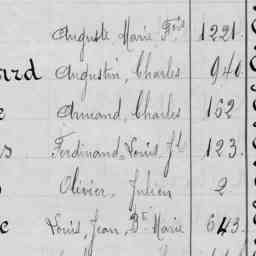 Auguste Marie Fçois 1221.
ard Augustin, Charles 940
e Armand, Charles 162
s Ferdinand-Louis Jh 123.
Olivier, Julien 2
e Louis, Jean, Bte Marie 643.